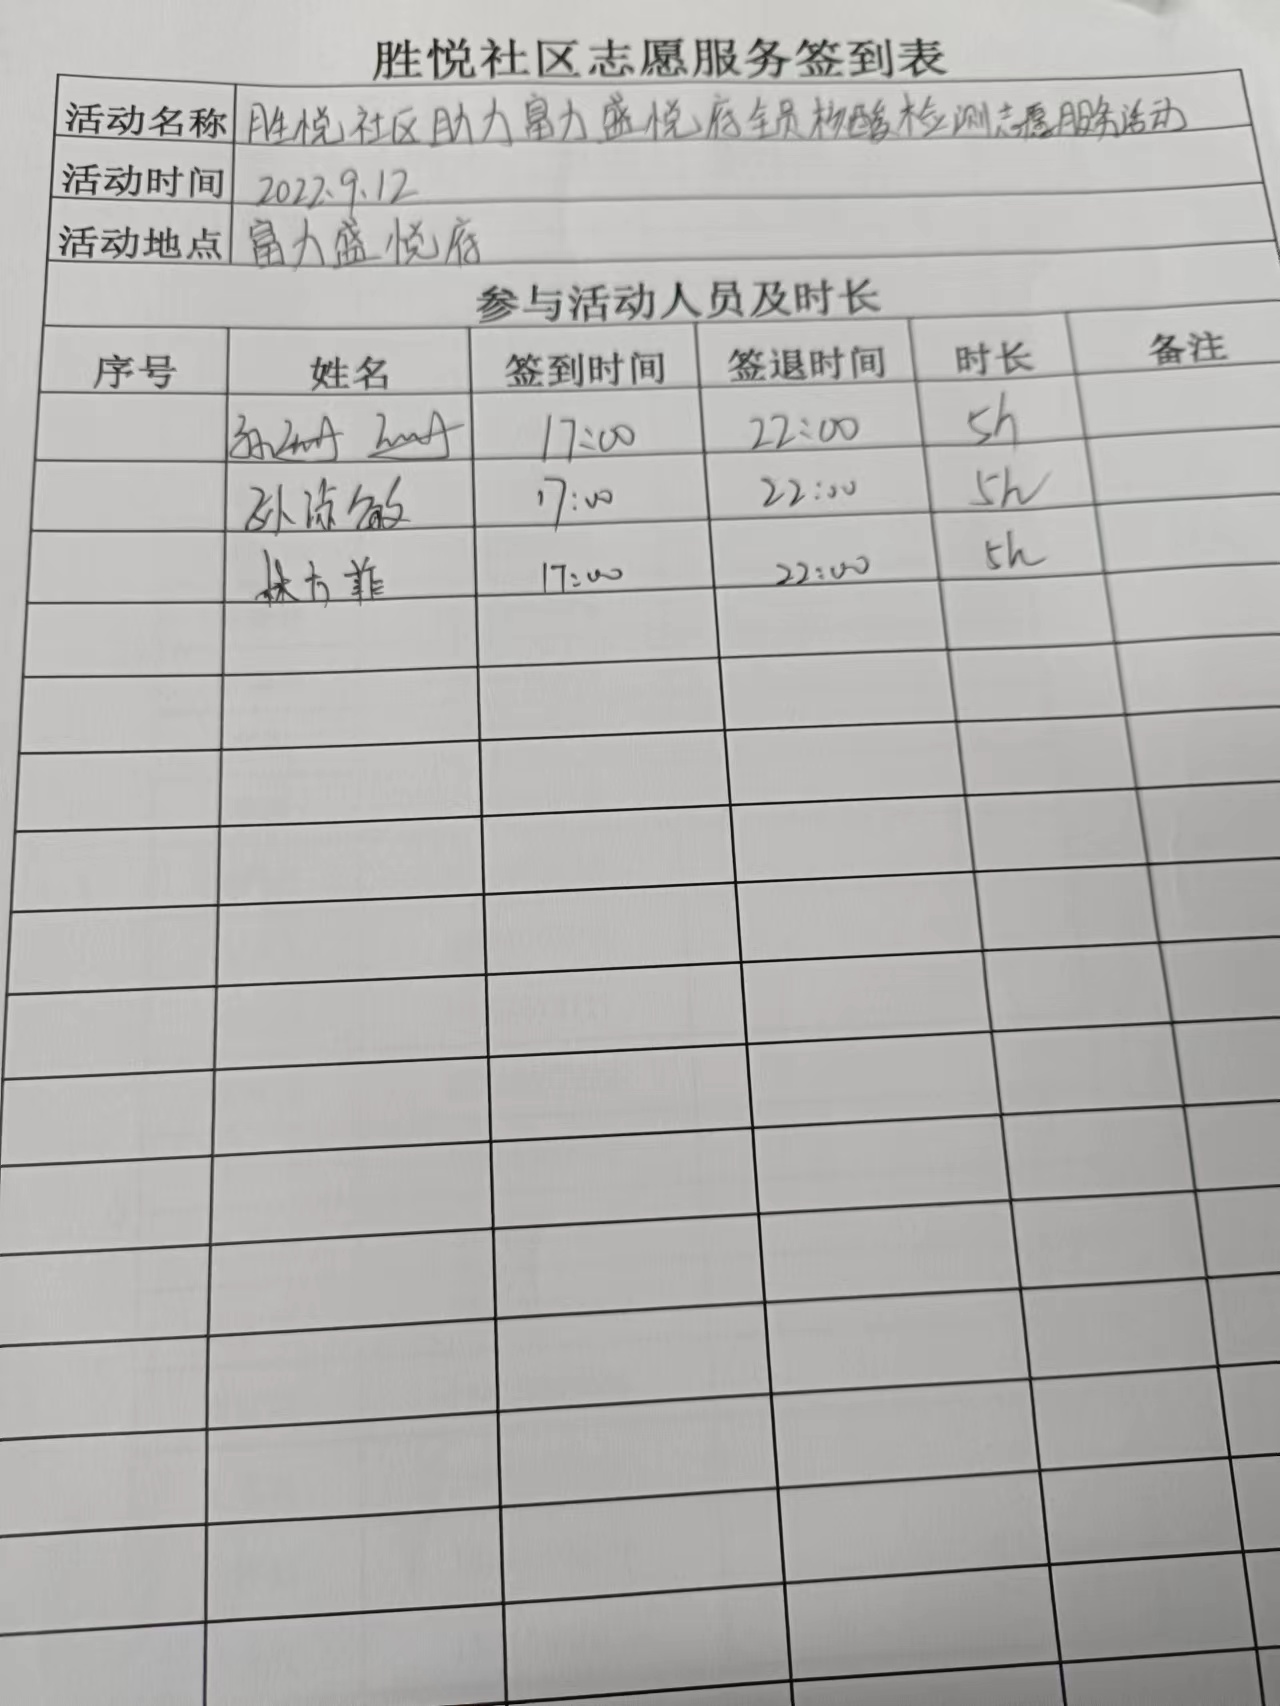 胜悦社区志愿服务签到表
活动名称 胜悦社区助力富力盛悦府全员核酸检测志愿服务活动
活动时间 2022.9.12
活动地点 富力盛悦府
参与活动人员及时长
序号 姓名 签到时间 签退时间 时长 备注
17:00 22:00 5h
17:00 22:00 5h
17:00 22:00 5h